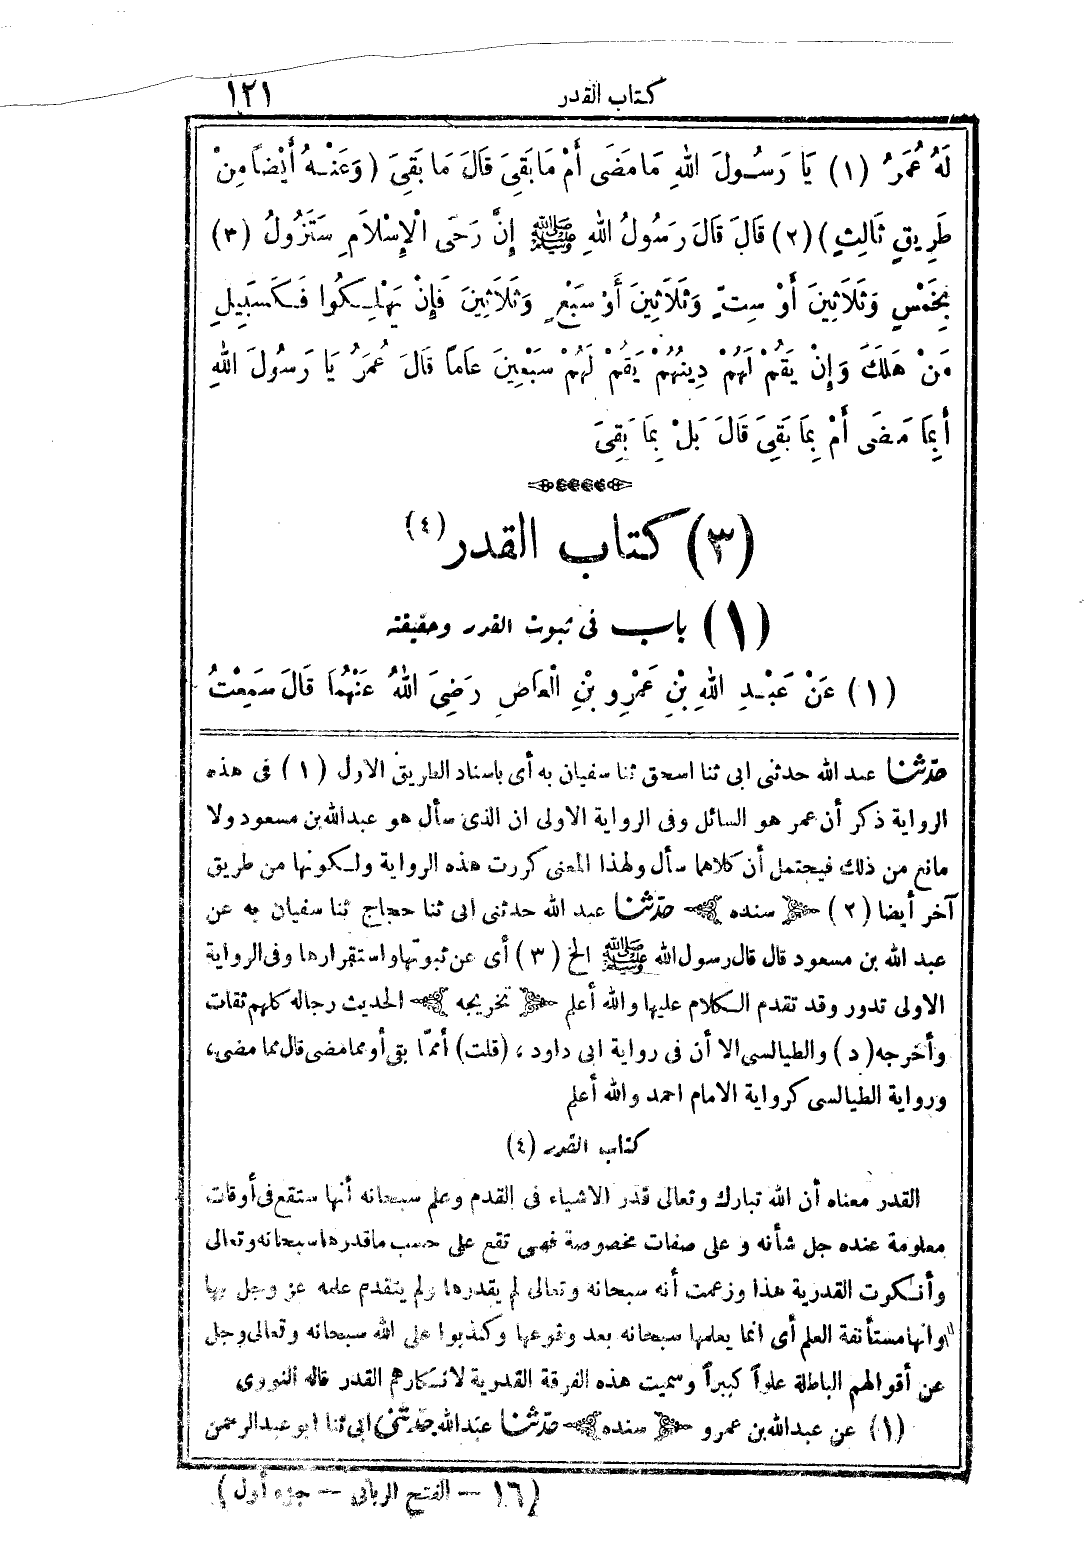 كتاب القدر ١٢١
لَهُ عُمَرُ (١) يَا رَسُولَ اللهِ مَا مَضَى أَمْ مَا بَقِىَ قَالَ مَا بَقِىَ (وَعَنْهُ أَيْضاً مِنْ
طَرِيقٍ ثَالِثٍ) (٢) قَالَ قَالَ رَسُولُ اللهِ ﷺ إِنَّ رَحَى الْإِسْلَامِ سَتَزُولُ (٣)
بِخَمْسٍ وَثَلَاثِينَ أَوْ سِتٍّ وَثَلَاثِينَ أَوْ سَبْعٍ وَثَلَاثِينَ فَإِنْ يَهْلِكُوا فَكَسَبِيلِ
مَنْ هَلَكَ وَإِنْ يَقُمْ لَهُمْ دِينُهُمْ يَقُمْ لَهُمْ سَبْعِينَ عَاماً قَالَ عُمَرُ يَا رَسُولَ اللهِ
أَبِمَا مَضَى أَمْ بِمَا بَقِىَ قَالَ بَلْ بِمَا بَقِىَ
(٣) كتاب القدر (٤)
(١) باب فى ثبوت القدر وحقيقته
(١) عَنْ عَبْدِ اللهِ بْنِ عَمْرِو بْنِ الْعَاصِ رَضِىَ اللهُ عَنْهُمَا قَالَ سَمِعْتُ
حدّثنا عبد الله حدثنى ابى ثنا اسحق ثنا سفيان به أى باسناد الطريق الاول (١) فى هذه
الرواية ذكر أن عمر هو السائل وفى الرواية الاولى ان الذى سأل هو عبدالله بن مسعود ولا
مانع من ذلك فيحتمل أن كلاهما سأل ولهذا المعنى كررت هذه الرواية ولكونها من طريق
آخر أيضا (٢) ﴿سنده﴾ حدّثنا عبد الله حدثنى ابى ثنا حجاج ثنا سفيان به عن
عبد الله بن مسعود قال قال رسول الله ﷺ الخ (٣) أى عن ثبوتها واستقرارها وفى الرواية
الاولى تدور وقد تقدم الكلام عليها والله أعلم ﴿تخريجه﴾ الحديث رجاله كلهم ثقات
وأخرجه (د) والطيالسى الا أن فى رواية ابى داود ، (قلت) أممّا بقى أو مما مضى قال مما مضى،
ورواية الطيالسى كرواية الامام احمد والله أعلم
كتاب القدر (٤)
القدر معناه أن الله تبارك وتعالى قدر الاشياء فى القدم وعلم سبحانه أنها ستقع فى أوقات
معلومة عنده جل شأنه و على صفات مخصوصة فهى تقع على حسب ما قدرها سبحانه وتعالى
وأنكرت القدرية هذا وزعمت أنه سبحانه وتعالى لم يقدرها ولم يتقدم علمه عز وجل بها
وانها مستأنفة العلم أى انما يعلمها سبحانه بعد وقوعها وكذبوا على الله سبحانه وتعالى وجل
عن أقوالهم الباطلة علواً كبيراً وسميت هذه الفرقة القدرية لانكارهم القدر قاله النووى
(١) عن عبدالله بن عمرو ﴿سنده﴾ حدّثنا عبدالله حدّثنى ابى ثنا ابو عبد الرحمن
(١٦ — الفتح الربانى — جزء أول)